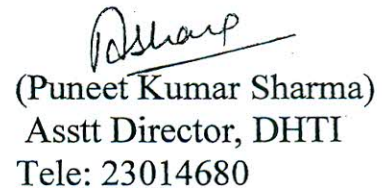 (Puneet Kumar Sharma)
Asstt Director, DHTI
Tele: 23014680